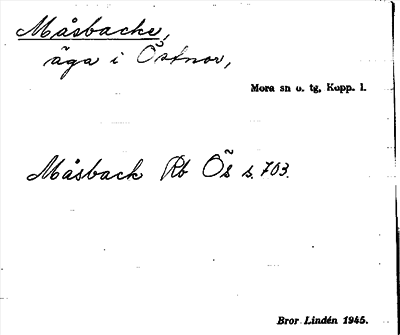 Måsbacke,
äga i Östnor,
Mora sn o. tg, Kopp. l.
Måsback Rb Ös s. 703.
Bror Lindén 1945.